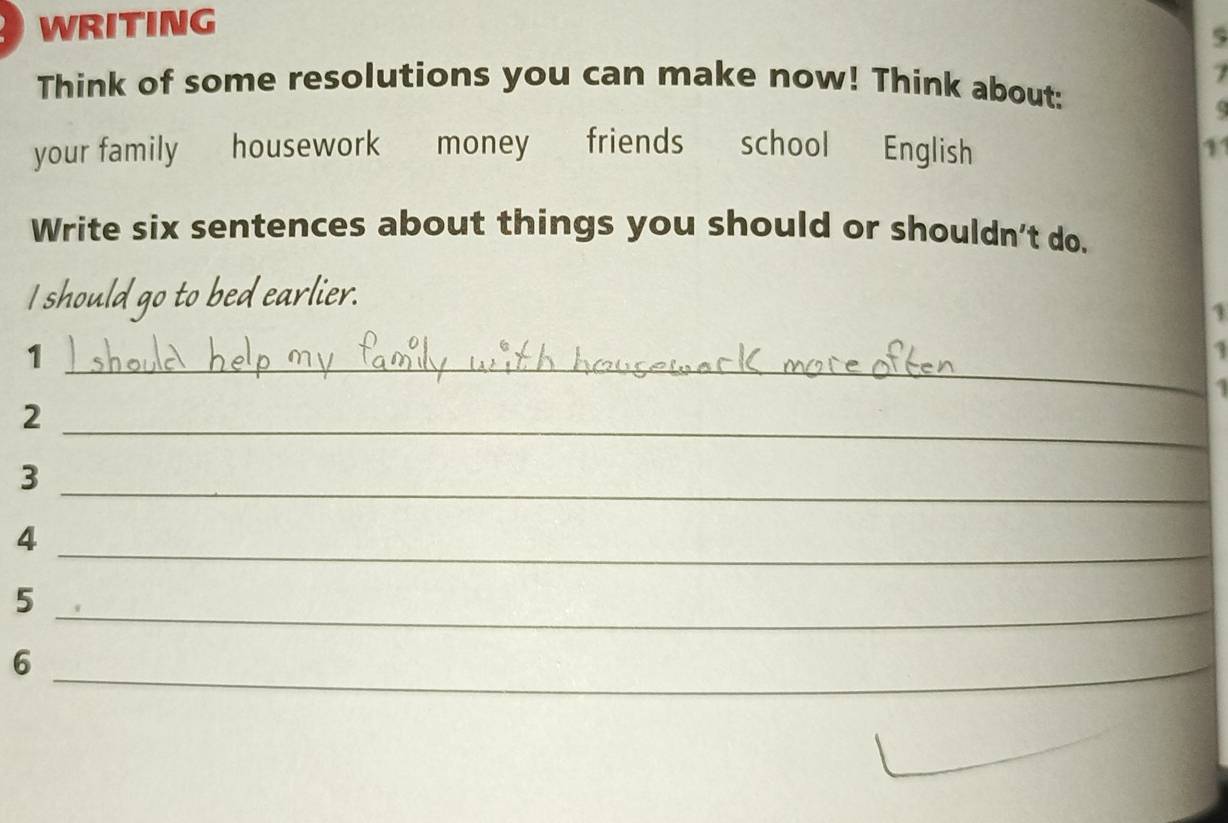 WRITING
Think of some resolutions you can make now! Think about:
your family housework money friends school English
Write six sentences about things you should or shouldn't do.
I should go to bed earlier.
1 I should help my family with housework more often
2
3
4
5
6